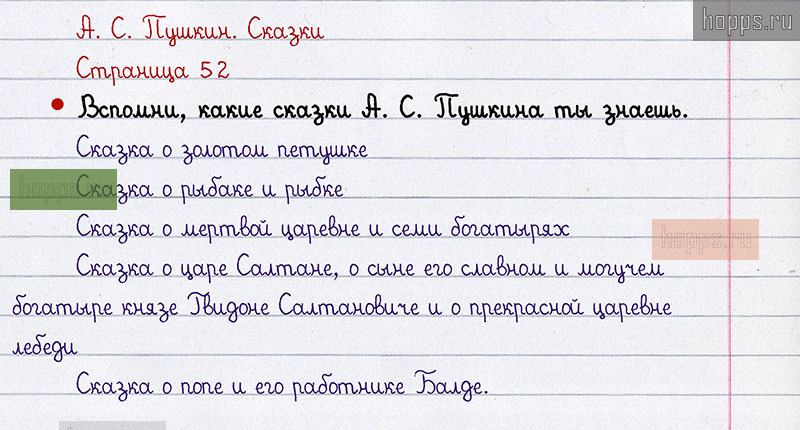 hopps.ru
А. С. Пушкин. Сказки
Страница 52
• Вспомни, какие сказки А. С. Пушкина ты знаешь.
Сказка о золотом петушке
hopps
Сказка о рыбаке и рыбке
Сказка о мертвой царевне и семи богатырях
hopps.ru
Сказка о царе Салтане, о сыне его славном и могучем
богатыре князе Гвидоне Салтановиче и о прекрасной царевне
лебеди
Сказка о попе и его работнике Балде.